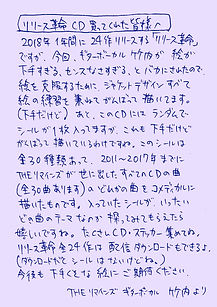 リリース革命 CD 買ってくれた皆様へ
2018年1年間に24作リリースする「リリース革命」
ですが、今回、ギターボーカル竹内が 絵が
下手すぎる、センスなさすぎる、とバカにされたので、
絵を克服するために、ジャケットデザイン すべて
絵の練習を兼ねてがんばって描いてます。
(下手だけど) あと、このCDには ランダムで
シールが1枚入ってますが、これも下手だけど
がんばって描いているわけですね。このシールは
全30種類あって、2011〜2017年までに
THEリマインズが世に出したすべてのCDの曲
(全30曲あります)のどれかの曲をコメディカルに
描いたものです。入っていたシールが、いったい
どの曲のテーマなのか 探ってみてもらえたら
嬉しいですね。ただしCD・ステッカー集めてね。
リリース革命 全24作は 配信ダウンロードもできるよ。
(ダウンロードだと シールはないけどね。)
今後も下手くそな 絵に ご期待ください。
THEリマインズ ギターボーカル 竹内より